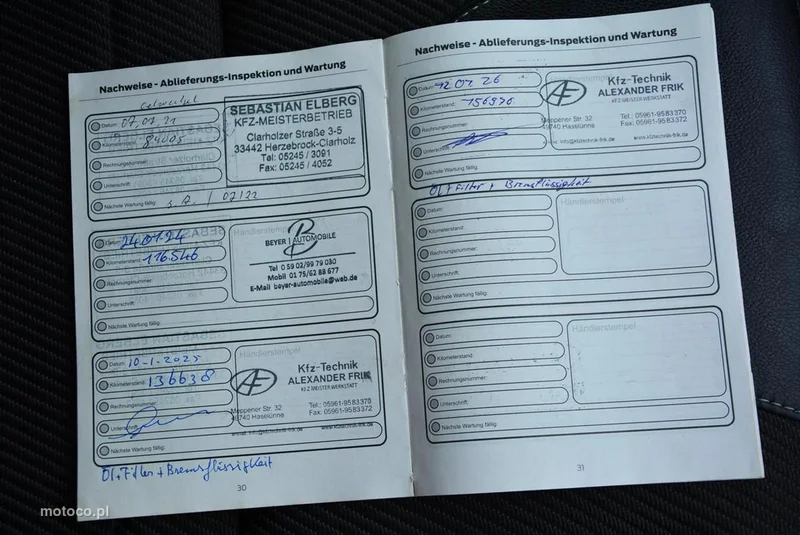 Nachweise - Ablieferungs-Inspektion und Wartung
Datum: 07.01.21
Kilometerstand: 84005
Rechnungsnummer:
Unterschrift:
Nächste Wartung fällig: 07/22
SEBASTIAN ELBERG
KFZ-MEISTERBETRIEB
Clarholzer Straße 3-5
33442 Herzebrock-Clarholz
Tel: 05245 / 3091
Fax: 05245 / 4052
Datum: 24.01.24
Kilometerstand: 116546
Rechnungsnummer:
Unterschrift:
Nächste Wartung fällig:
Händlerstempel
BEYER AUTOMOBILE
Tel 0 59 02/99 79 030
Mobil 01 75/62 88 677
E-Mail beyer-automobile@web.de
Datum: 10-1-2025
Kilometerstand: 136638
Rechnungsnummer:
Unterschrift:
Nächste Wartung fällig:
Händlerstempel
AF
Kfz-Technik
ALEXANDER FRIK
KFZ MEISTERWERKSTATT
Meppener Str. 32
49740 Haselünne
Tel.: 05961-9583370
Fax: 05961-9583372
Öl+Filter + Bremsflüssigkeit
30
Nachweise - Ablieferungs-Inspektion und Wartung
Datum: 12.01.26
Kilometerstand: 156976
Rechnungsnummer:
Unterschrift:
Nächste Wartung fällig:
AF
Kfz-Technik
ALEXANDER FRIK
KFZ MEISTERWERKSTATT
Meppener Str. 32
49740 Haselünne
Tel.: 05961-9583370
Fax: 05961-9583372
www.kfztechnik-frik.de
Öl + Filter + Bremsflüssigkeit
Datum:
Kilometerstand:
Rechnungsnummer:
Unterschrift:
Nächste Wartung fällig:
Händlerstempel
Datum:
Kilometerstand:
Rechnungsnummer:
Unterschrift:
Nächste Wartung fällig:
Händlerstempel
31
motoco.pl